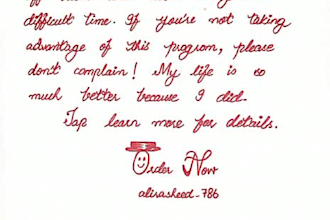 difficult time. If you're not taking
advantage of this program, please
don't complain! My life is so
much better because I did.
Tap learn more for details.
Order Now
alirasheed_786